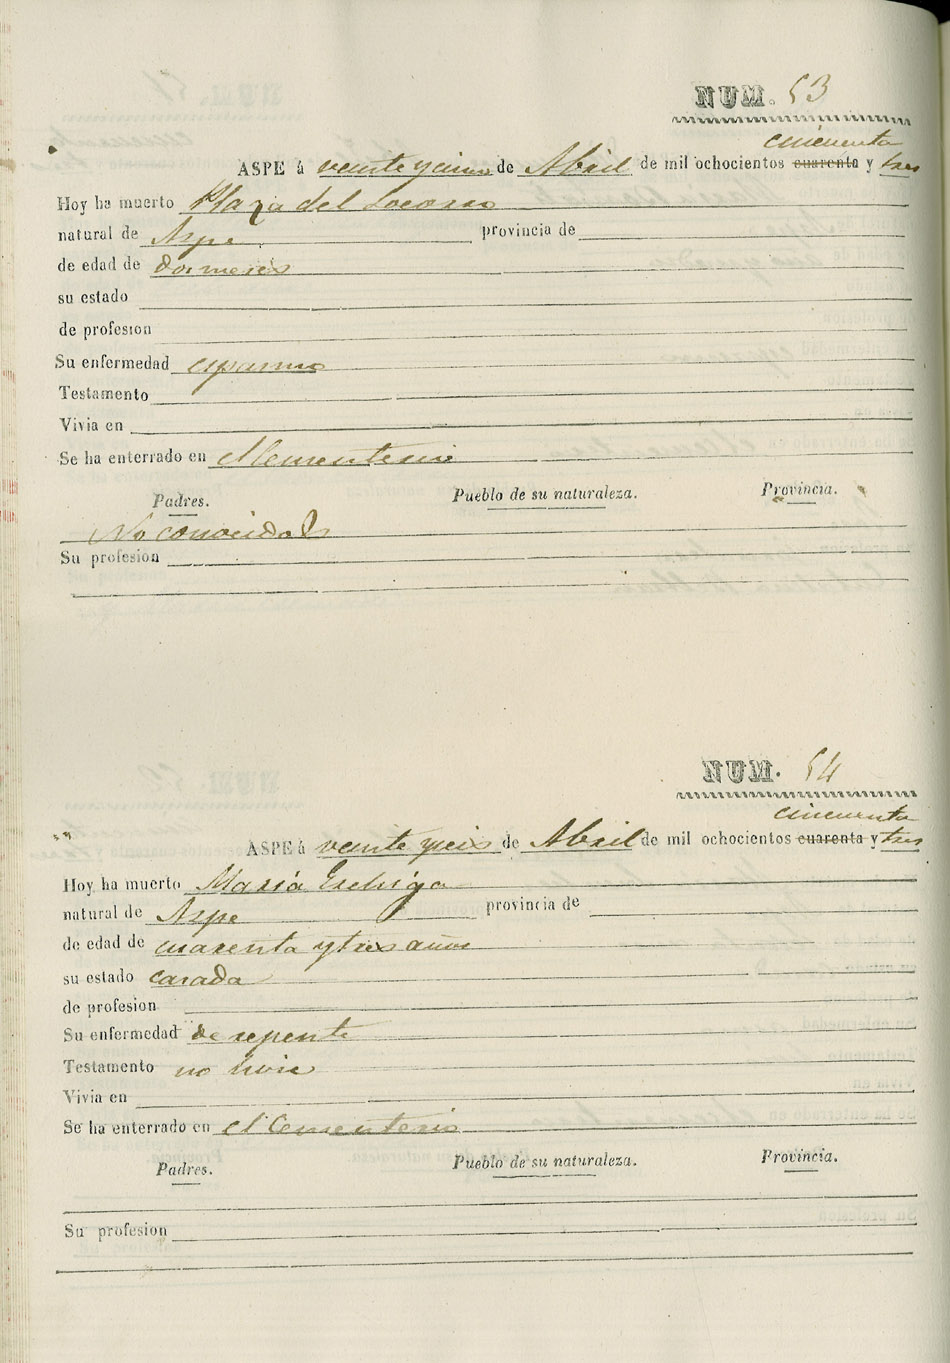 NUM. 53
cincuenta
ASPE á veinte y cinco de Abril de mil ochocientos cuarenta y tres
Hoy ha muerto Plaza del Socorro
natural de Aspe provincia de
de edad de dos meses
su estado
de profesion
Su enfermedad espasmo
Testamento
Vivia en
Se ha enterrado en el Cementerio
Padres. Pueblo de su naturaleza. Provincia.
No conocidos
Su profesion
NUM. 54
cincuenta
ASPE á veinte y seis de Abril de mil ochocientos cuarenta y tres
Hoy ha muerto Maria
natural de Aspe provincia de
de edad de cuarenta y tres años
su estado casada
de profesion
Su enfermedad de repente
Testamento no hiso
Vivia en
Se ha enterrado en el Cementerio
Padres. Pueblo de su naturaleza. Provincia.
Su profesion